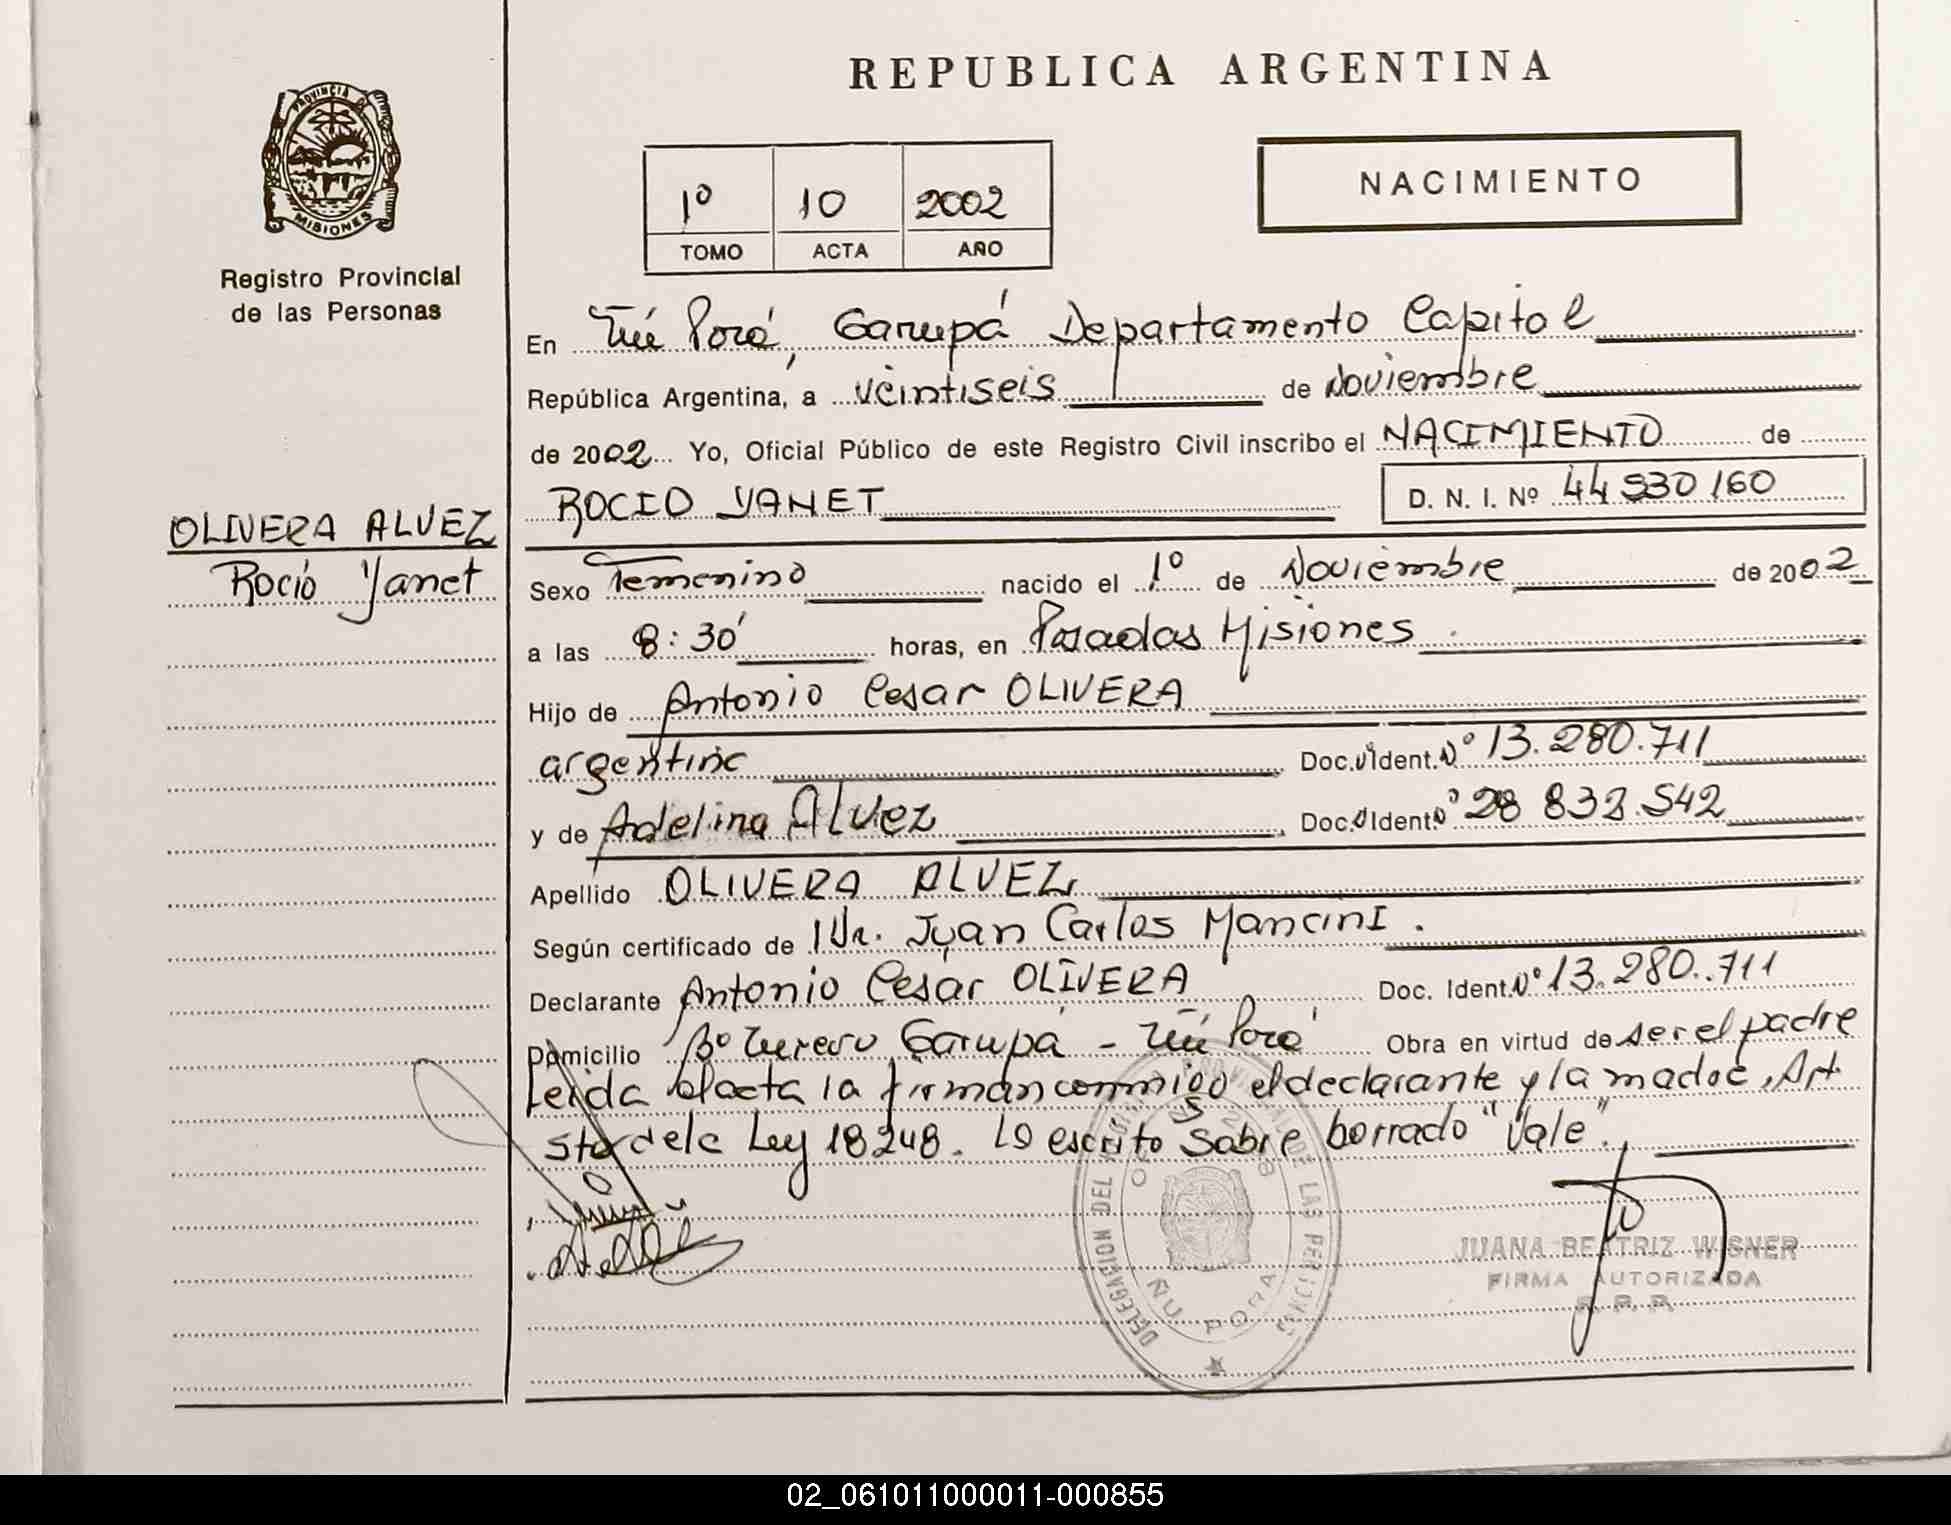 REPUBLICA ARGENTINA
PROVINCIA DE
MISIONES
Registro Provincial
de las Personas
NACIMIENTO
1º 10 2002
TOMO ACTA AÑO
En Ñú Porá, Garupá Departamento Capital
República Argentina, a veintiseis de Noviembre
de 2002 Yo, Oficial Público de este Registro Civil inscribo el NACIMIENTO de
ROCIO YANET D. N. I. Nº 44 530 160
OLIVERA ALVEZ
Rocío Yanet
Sexo Femenino nacido el 1º de Noviembre de 2002
a las 8:30' horas, en Posadas Misiones
Hijo de Antonio Cesar OLIVERA
argentino Doc. Ident. Nº 13.280.711
y de Adelina Alvez Doc. Ident. Nº 28 832.542
Apellido OLIVERA ALVEZ
Según certificado de Juan Carlos Mancini.
Declarante Antonio Cesar OLIVERA Doc. Ident. Nº 13.280.711
Domicilio Bº Garupá - Ñú Porá Obra en virtud de ser el padre
Leida el acta la firman conmigo el declarante y la madre, Art.
5to de la Ley 18248. Lo escrito sobre borrado "Vale".
DELEGACION DEL REGISTRO PROVINCIAL DE LAS PERSONAS
ÑU PORA
JUANA BEATRIZ WISNER
FIRMA AUTORIZADA
R. P. P.
02_061011000011-000855